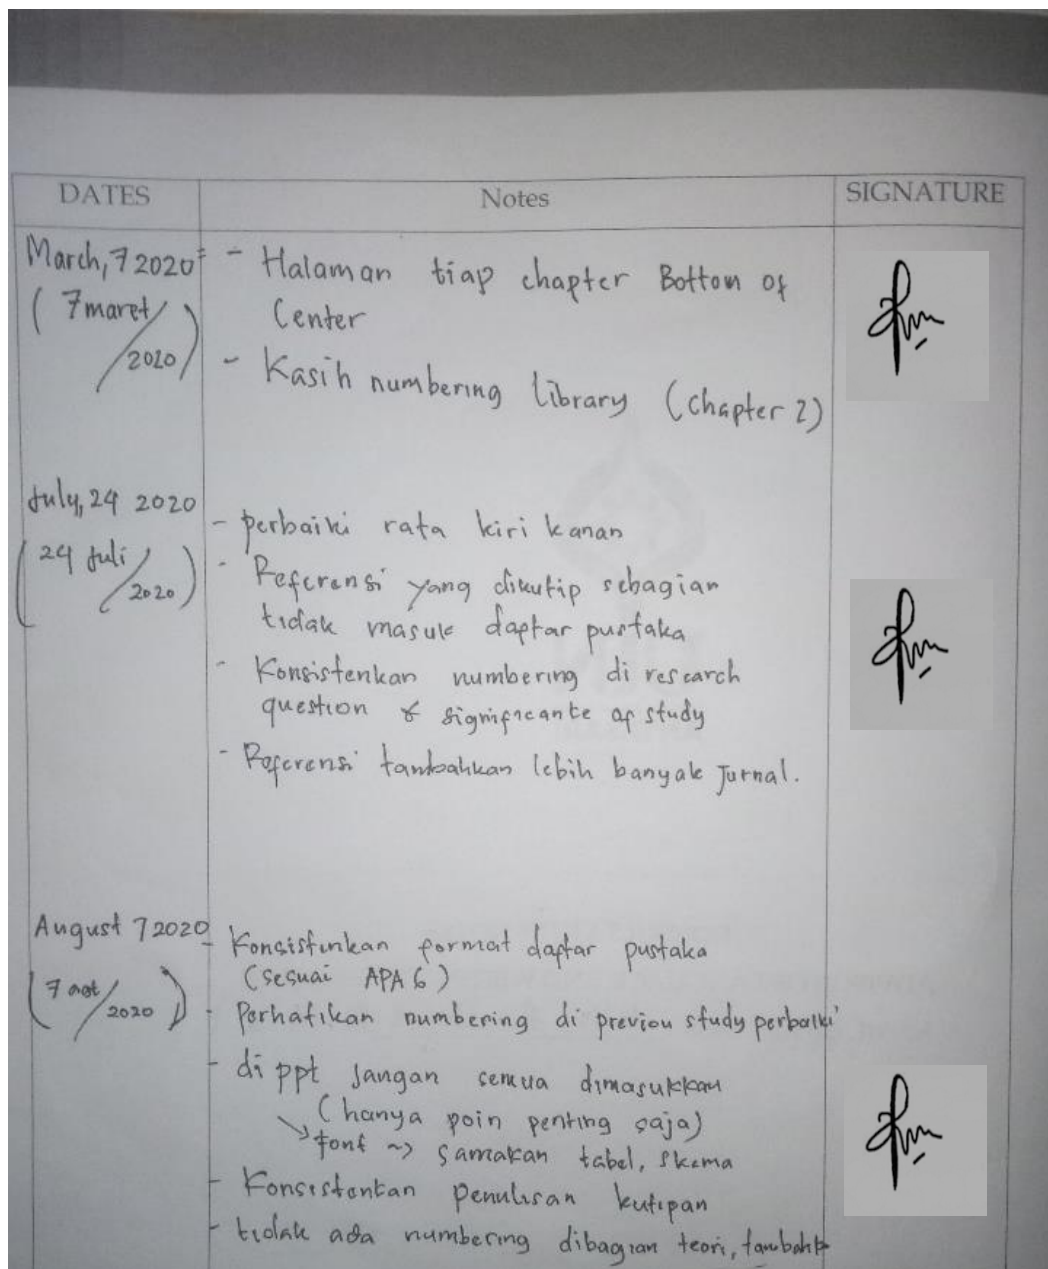 DATES Notes SIGNATURE
March, 7 2020 - Halaman tiap chapter Bottom of
(7 maret/2020) Center
- Kasih numbering library (chapter 2)
July, 24 2020
(24 Juli/2020) - perbaiki rata kiri kanan
- Referensi yang dikutip sebagian
tidak masuk daftar pustaka
- Konsistenkan numbering di research
question & significante of study
- Referensi tambahkan lebih banyak Jurnal.
August 7 2020 - Konsistenkan format daftar pustaka
(7 /2020) (sesuai APA 6)
- Perhatikan numbering di previou study perbaiki
- di ppt Jangan semua dimasukkan
(hanya poin penting saja)
↘ font ~> samakan tabel, skema
- Konsistenkan penulisan kutipan
- tidak ada numbering dibagian teori,